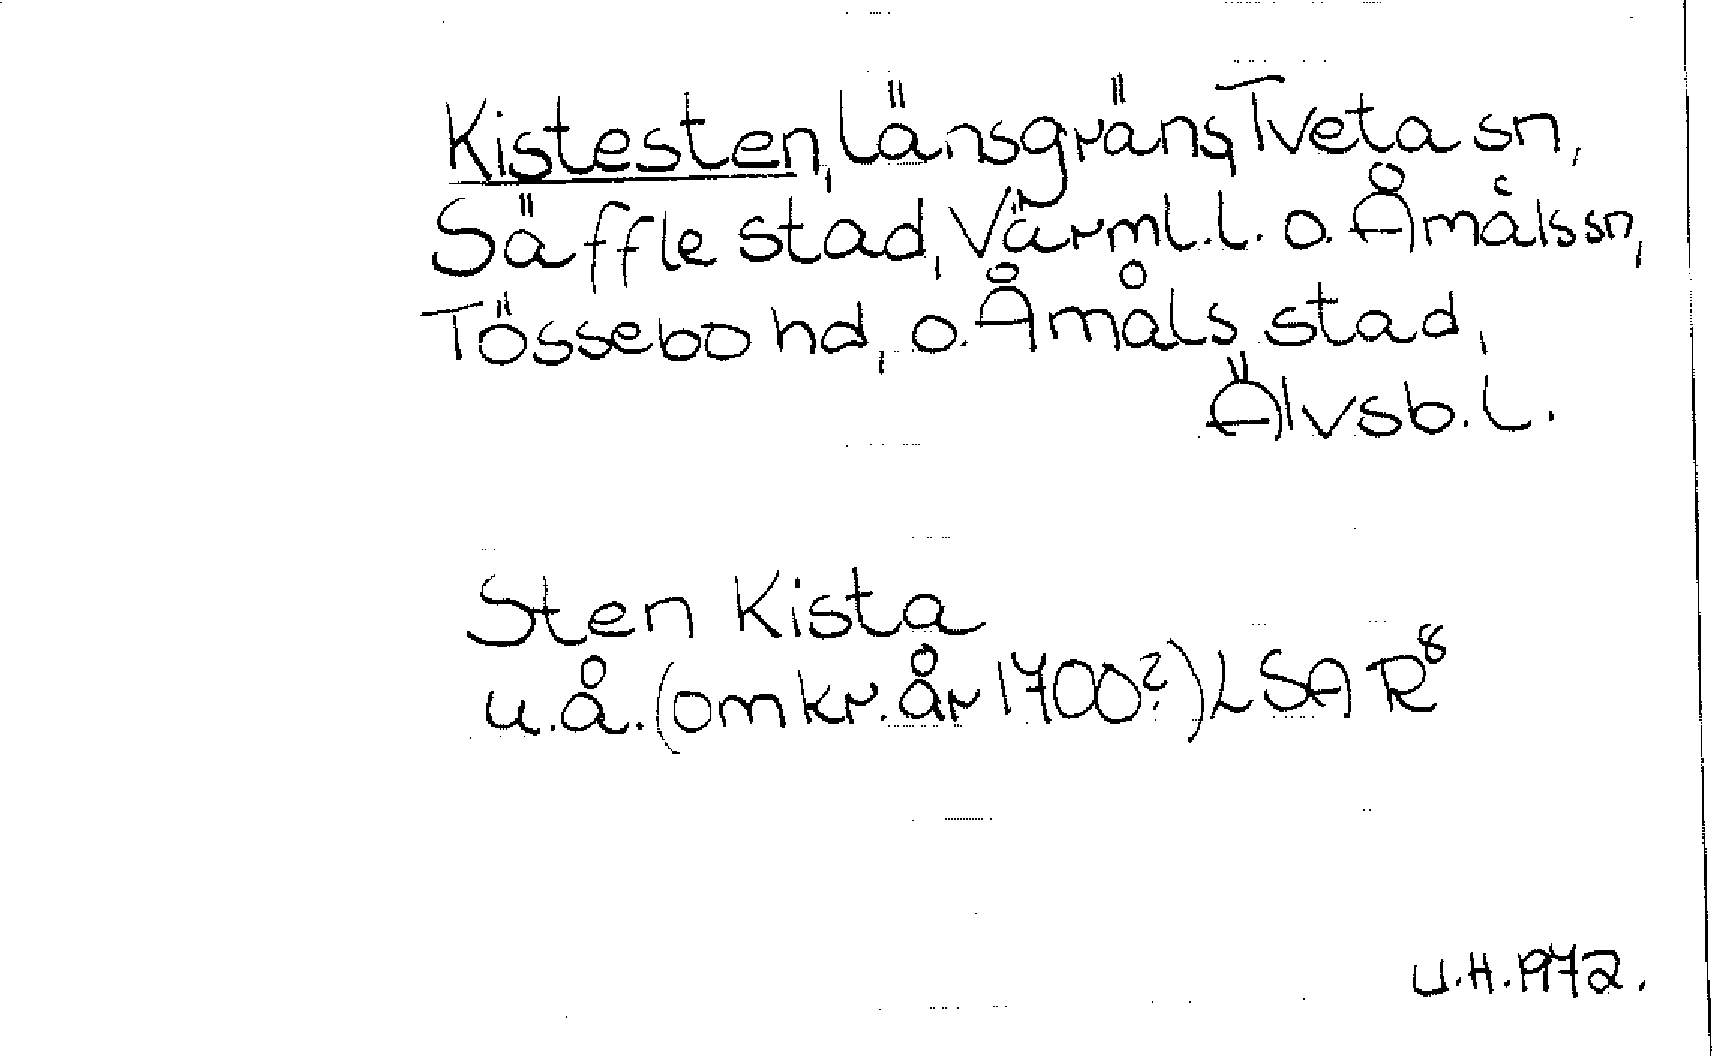 Kistesten, länsgräns, Tveta sn,
Säffle stad, Värml.l. o. Åmåls sn,
Tössebo hd, o. Åmåls stad,
Älvsb.l.
Sten Kista
u.å. (omkr. år 1700?) LSA R⁸
U.H. 1972.